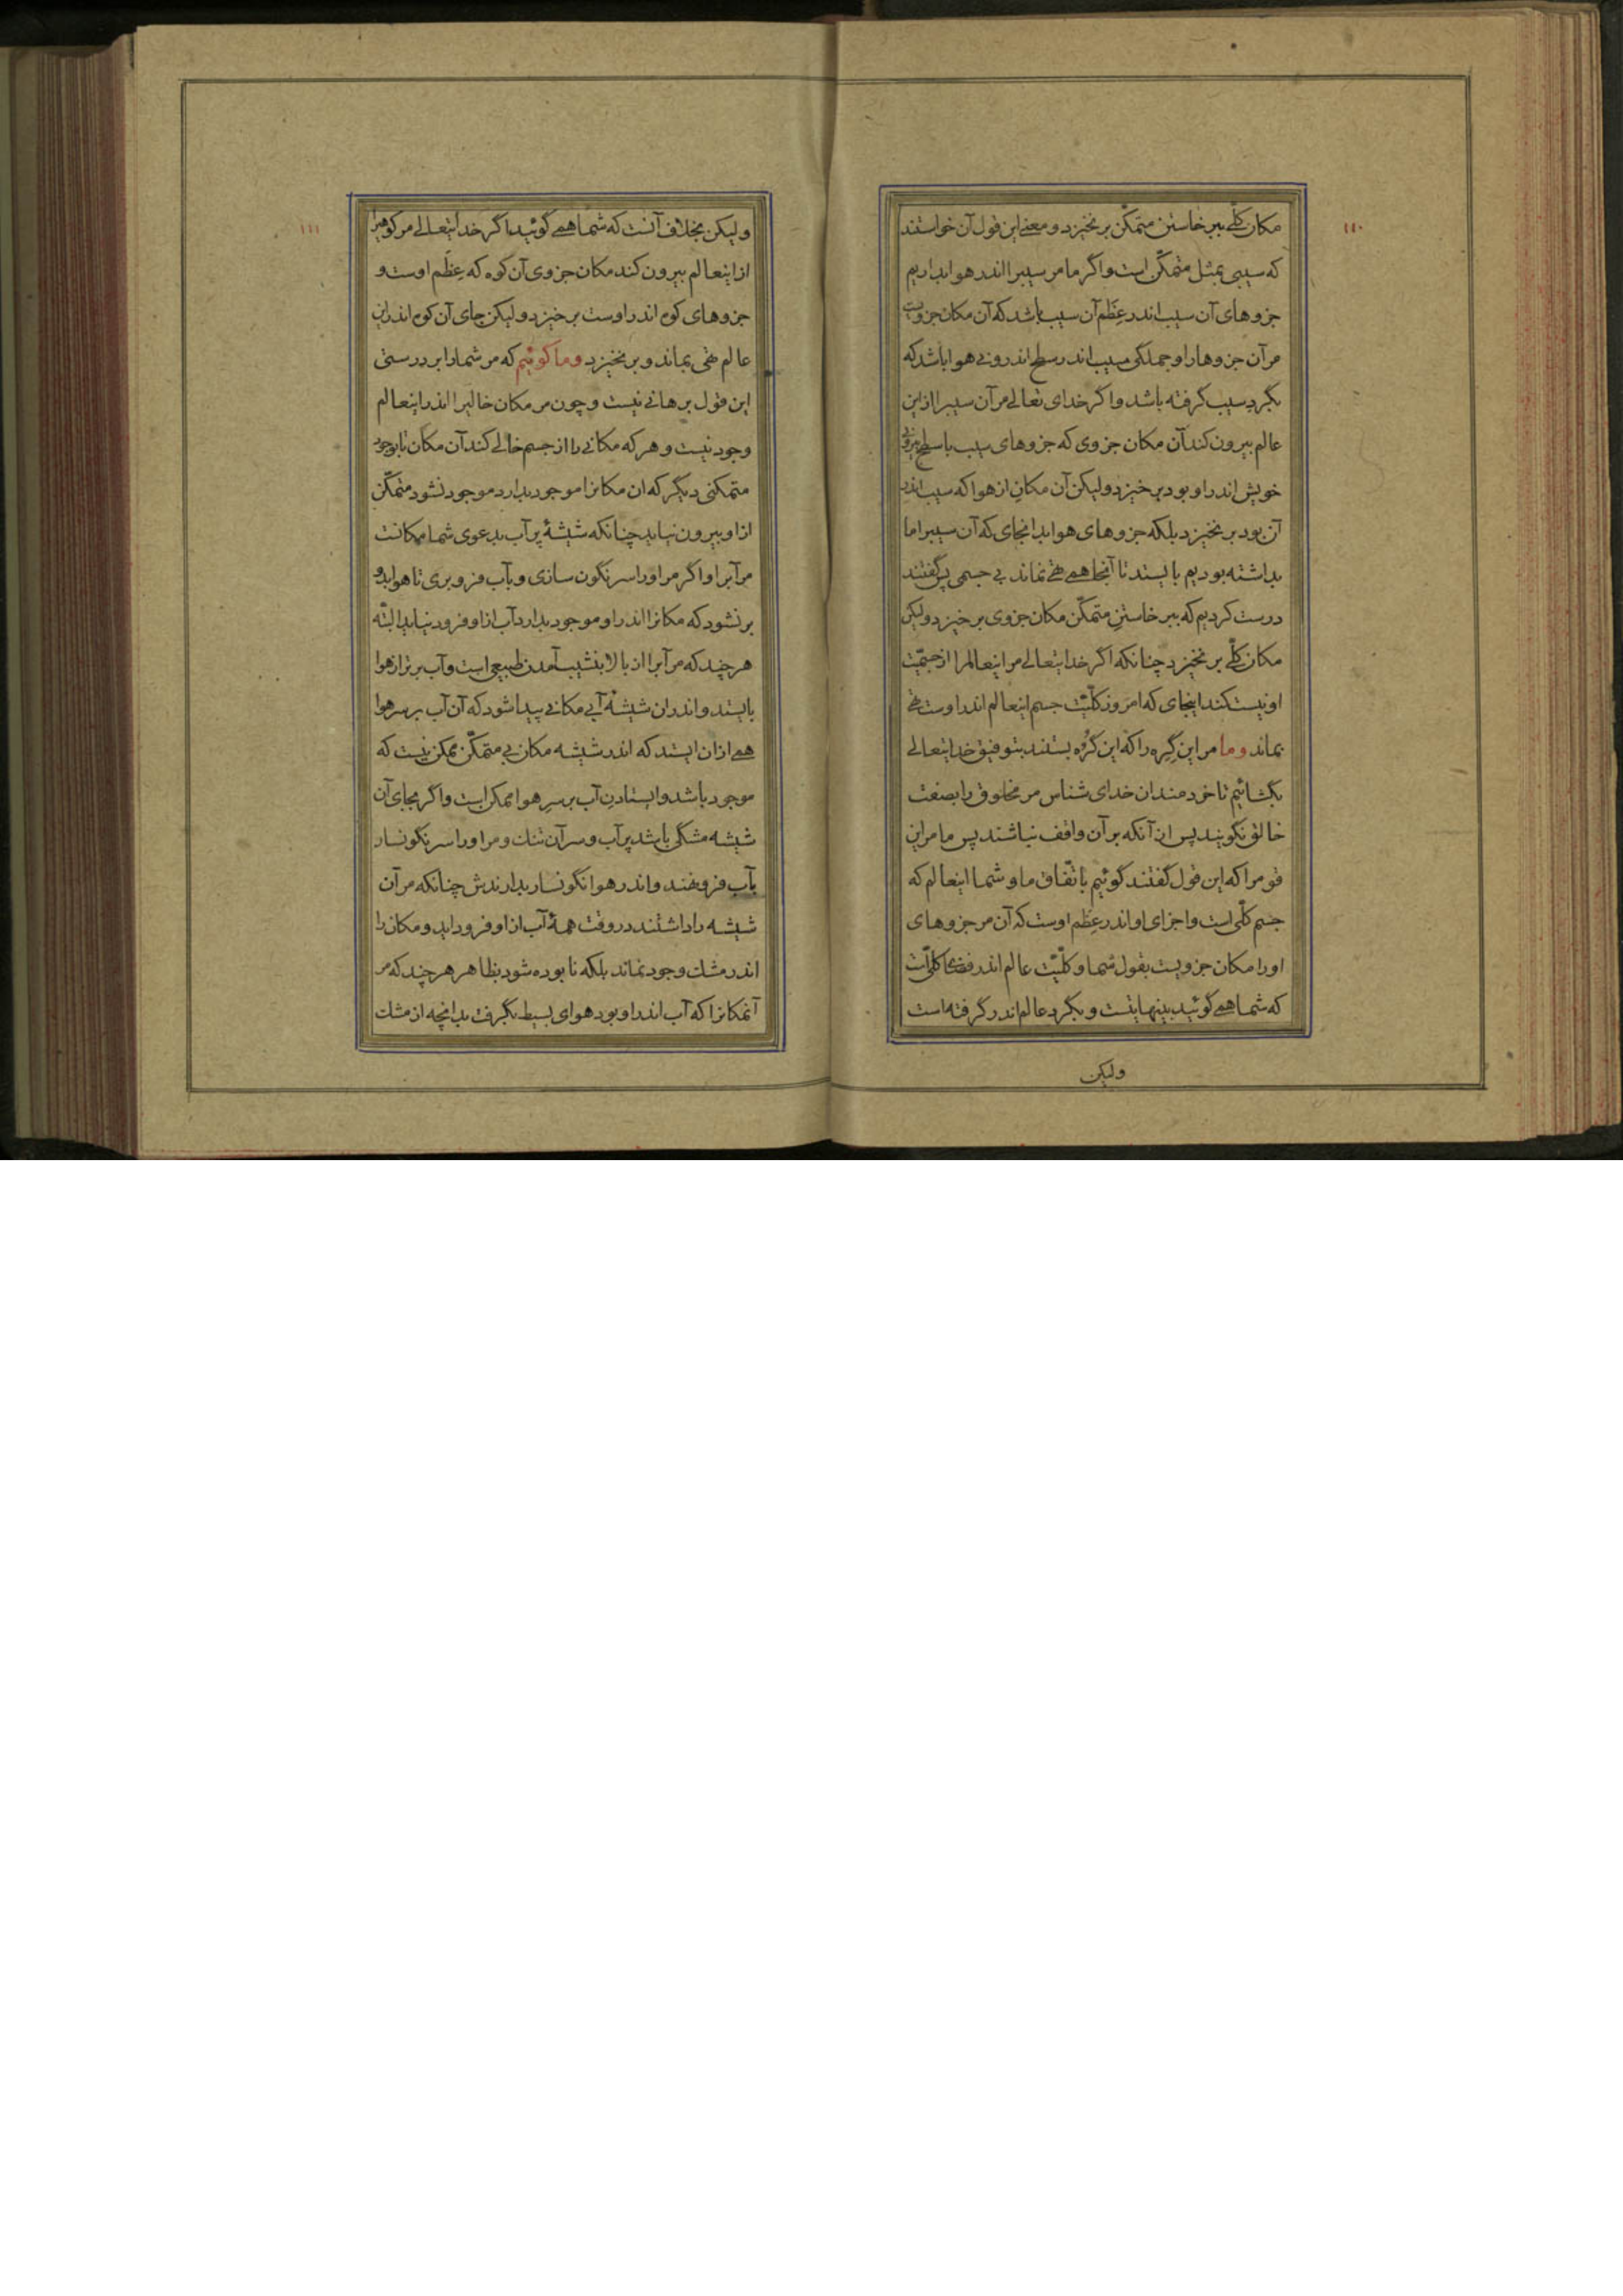 ۱۱۰
مکان کلّی ببر خاستن متمکّن بر نخیزد و معنی این قول آن خواستند
که سیبی بمثل متمکّن است و اگر ما مر سیبرا اندر هوا بداریم
جزوهای آن سیب اندر عِظَم آن سیب باشد که آن مکان جزویست
مر آن جزوها را و جملگی سیب اندر سطح اندرونی هوا باشد که
بگرد سیب گرفته باشد و اگر خدای تعالی مر آن سیبرا از این
عالم بیرون کند آن مکان جزوی که جزوهای سیب با سطح بیرونی
خویش اندر او بود بر خیزد ولیکن آن مکان از هوا که سیب اندر
آن بود بر نخیزد بلکه جزوهای هوا بدانجای که آن سیبرا ما
بداشته بودیم بایستد تا آنجا همی تهی نماند بی جسمی پس گفتند
درست کردیم که ببر خاستنِ متمکّن مکان جزوی بر خیزد ولیکن
مکان کلّی بر نخیزد چنانکه اگر خدایتعالی مر اینعالمرا از جسمیّت
او نیست کند اینجای که امروز کلّیّت جسم اینعالم اندر اوست تهی
بماند و ما مر این گِرِه را که این گُرُوه بستند بتوفیق خدایتعالی
بگشائیم تا خردمندان خدای شناس مر مخلوق را بصفت
خالق نگویند پس از آنکه بر آن واقف نباشند پس ما مر این
قومرا که این قول گفتند گوئیم باتّفاق ما و شما اینعالم که
جسم کلّی است و اجزای او اندر عِظَم اوست که آن مر جزوهای
او را مکان جزویست بقول شما و کلّیّت عالم اندر فضای کلّی است
که شما همی گوئید بینهایتست و بگرد عالم اندر گرفته است
ولیکن
۱۱۱
ولیکن بخلاف آنست که شما همی گوئید اگر خدایتعالی مر کوهیرا
از اینعالم بیرون کند مکان جزوی آن کوه که عِظَم اوست و
جزوهای کوه اندر اوست بر خیزد ولیکن جای آن کوه اندر این
عالم تهی بماند و بر نخیزد و ما گوئیم که مر شما را بر درستی
این قول برهانی نیست و چون مر مکان خالیرا اندر اینعالم
وجود نیست و هر که مکانی را از جسم خالی کند آن مکان تا بوجود
متمکنی دیگر که ان مکانرا موجود بدارد موجود نشود متمکّن
از او بیرون نیاید چنانکه شیشهٔ پر آب بدعوی شما مکانت
مر آبرا و اگر مر او را سر نگون سازی و بآب فرو بری تا هوا بدو
بر نشود که مکانرا اندر او موجود بدارد آب از او فرود نیاید البتّه
هر چند که مر آبرا از بالا بنشیب آمدن طبیعی است و آب برتر از هوا
بایستد و اندران شیشهٔ آبی مکانی پیدا شود که آن آب بر سر هوا
همی ازان ایستد که اندر شیشه مکان بی متمکّن ممکن نیست که
موجود باشد و ایستادنِ آب بر سرِ هوا ممکن است و اگر بجای آن
شیشه مشکی باشد پر آب و سر آن تنک و مر او را سر نگونسار
بآب فرو نهند و اندر هوا نگونسار بدارندش چنانکه مر آن
شیشه را داشتند در وقت همهٔ آب از او فرود اید و مکان را
اندر مشک وجود نماند بلکه نا بوده شود بظاهر هر چند که مر
آنمکانرا که آب اندر او بود هوای بسیط بگرفت بدانچه از مشک